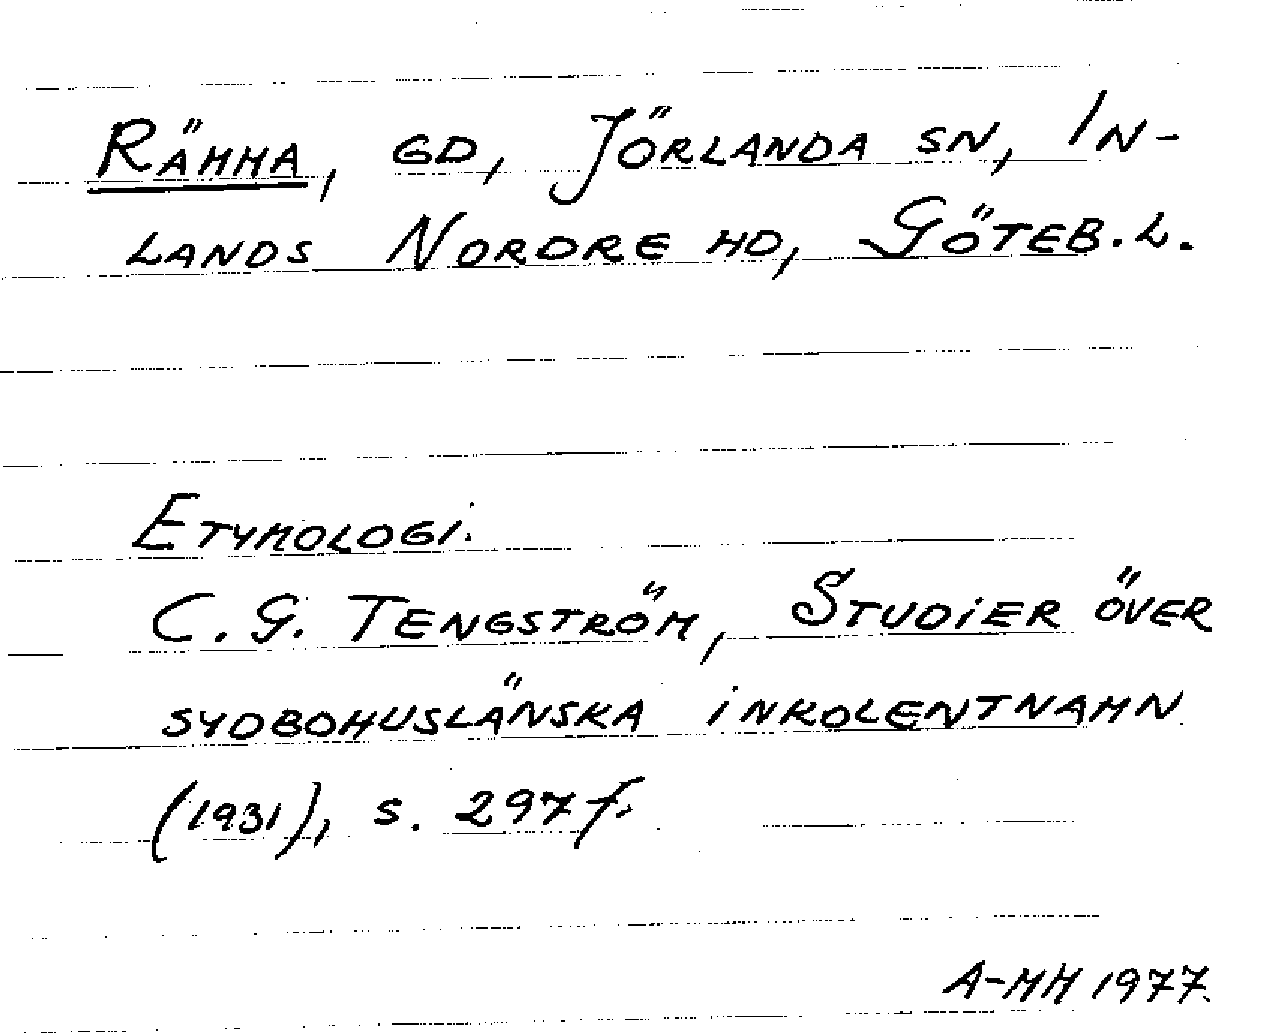 RÄMMA, GD, JÖRLANDA SN, IN-
LANDS NORDRE HD, GÖTEB.L.
ETYMOLOGI.
C.G. TENGSTRÖM, STUDIER ÖVER
SYDBOHUSLÄNSKA INKOLENTNAMN
(1931), S. 297 f.
A-MH 1977.